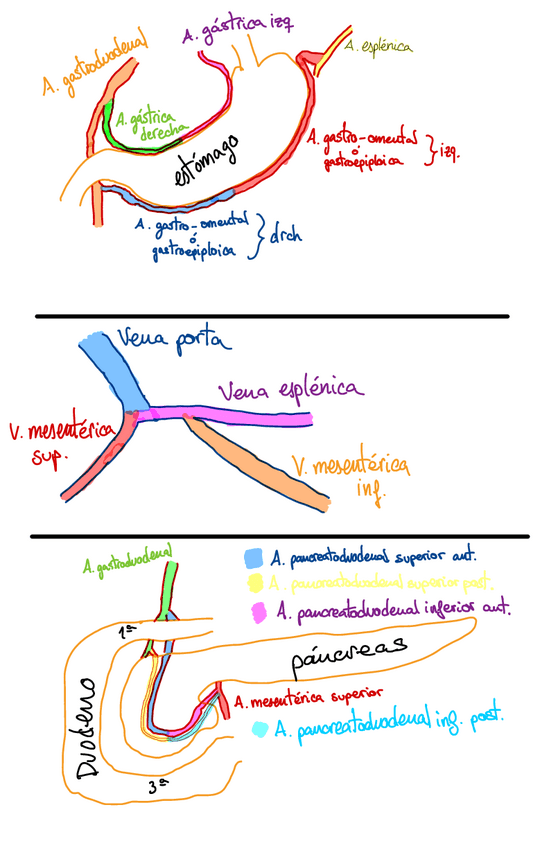 A. gastroduodenal
A. gástrica izq
A. esplénica
A. gástrica
derecha
estómago
A. gastro-omental
ó
gastroepiploica
} izq.
A. gastro-omental
ó
gastroepiploica
} drch
Vena porta
Vena esplénica
V. mesentérica
sup.
V. mesentérica
inf.
A. gastroduodenal
A. pancreatoduodenal superior ant.
A. pancreatoduodenal superior post.
A. pancreatoduodenal inferior ant.
1ª
páncreas
Duodeno
A. mesentérica superior
A. pancreatoduodenal inf. post.
3ª